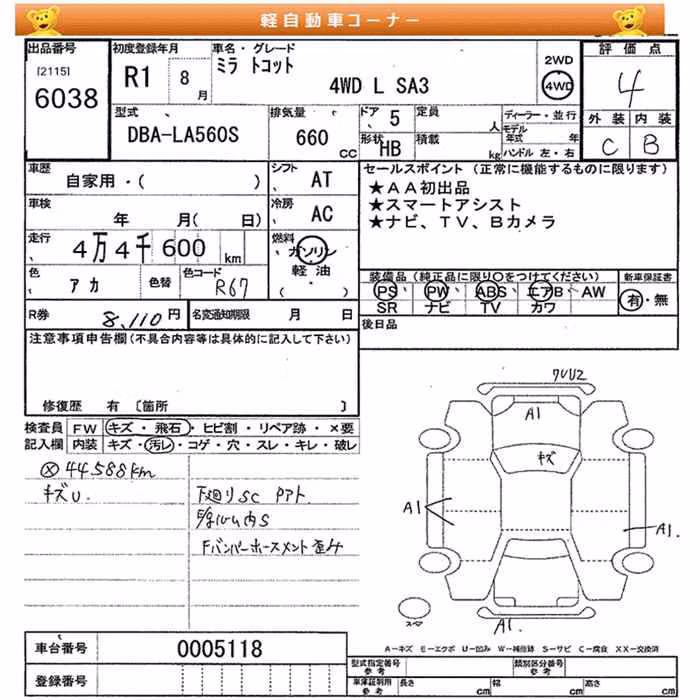 軽自動車コーナー
出品番号 初度登録年月 車名・グレード 評価点
[2115] 6038
R1 8 月
ミラ トコット
4WD L SA3
2WD
4WD
4
型式 排気量 ドア 定員 ディーラー・並行 外装 内装
DBA-LA560S 660 CC 5 人 モデル年式 年
形状 HB 積載 kg ハンドル 左・右 C B
車歴 シフト セールスポイント (正常に機能するものに限ります)
自家用・( ) AT
★AA初出品
★スマートアシスト
★ナビ、TV、Bカメラ
車検 年 月( 日) 冷房 AC
走行 4万4千600 km 燃料 ガソリン
軽油
( )
色 アカ 色替 色コード R67
装備品 (純正品に限り○をつけてください) 新車保証書
PS PW ABS エアB AW 有・無
SR ナビ TV カワ
R券 8,110円 名変通知期限 月 日
後日品
注意事項申告欄(不具合内容等は具体的に記入して下さい)
修復歴 有 [箇所 ]
検査員 FW キズ・飛石・ヒビ割・リペア跡・×要
記入欄 内装 キズ・汚レ・コゲ・穴・スレ・キレ・破レ
44588km
キズU.
下廻りSC
内S
Fバンパーホースメント歪み
ワレU2
A1
キズ
A1
A1.
A1.
スマ
A-キズ E-エクボ U-凹み W-補修跡 S-サビ C-腐食 XX-交換済
車台番号 0005118
登録番号
型式指定番号 参考 類別区分番号 参考
車庫証明用 参考 長さ cm 幅 cm 高さ cm